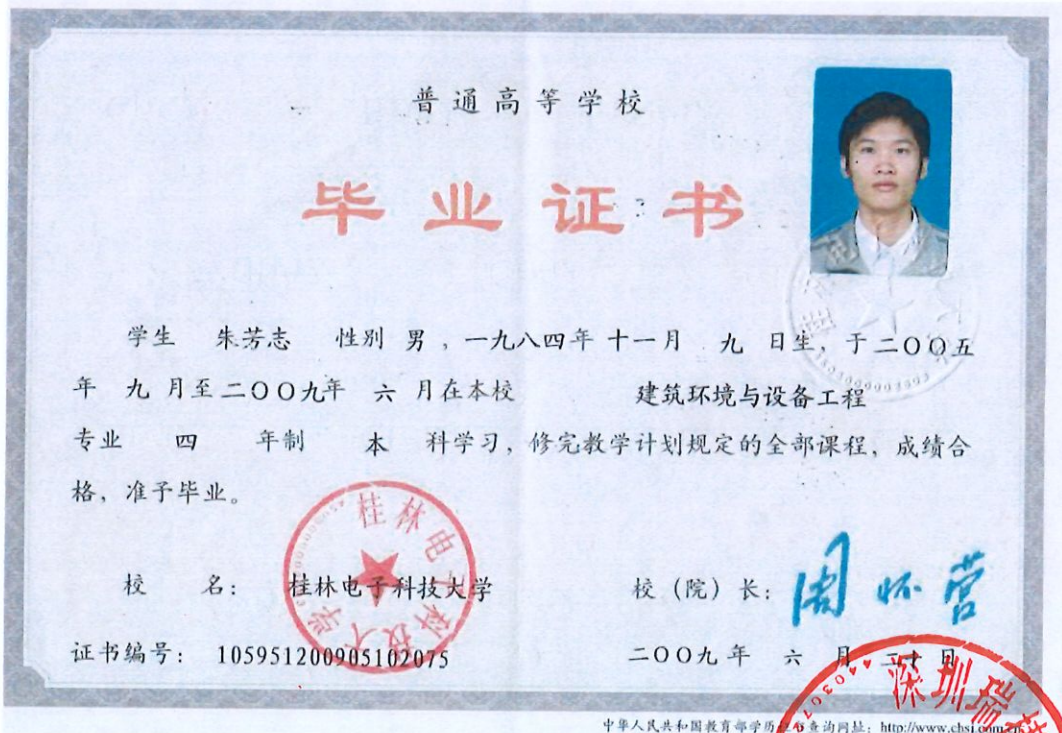 普通高等学校
毕业证书
学生 朱芳志 性别 男 ，一九八四年 十一月 九 日生，于二〇〇五
年 九 月至二〇〇九年 六 月在本校 建筑环境与设备工程
专业 四 年制 本 科学习，修完教学计划规定的全部课程，成绩合
格，准予毕业。
桂林电子科技大学
校 名： 桂林电子科技大学
校（院）长： 周怀营
证书编号： 105951200905102075
二〇〇九年 六 月 二十 日
深圳瑞
中华人民共和国教育部学历证书查询网址：http://www.chsi.com.cn